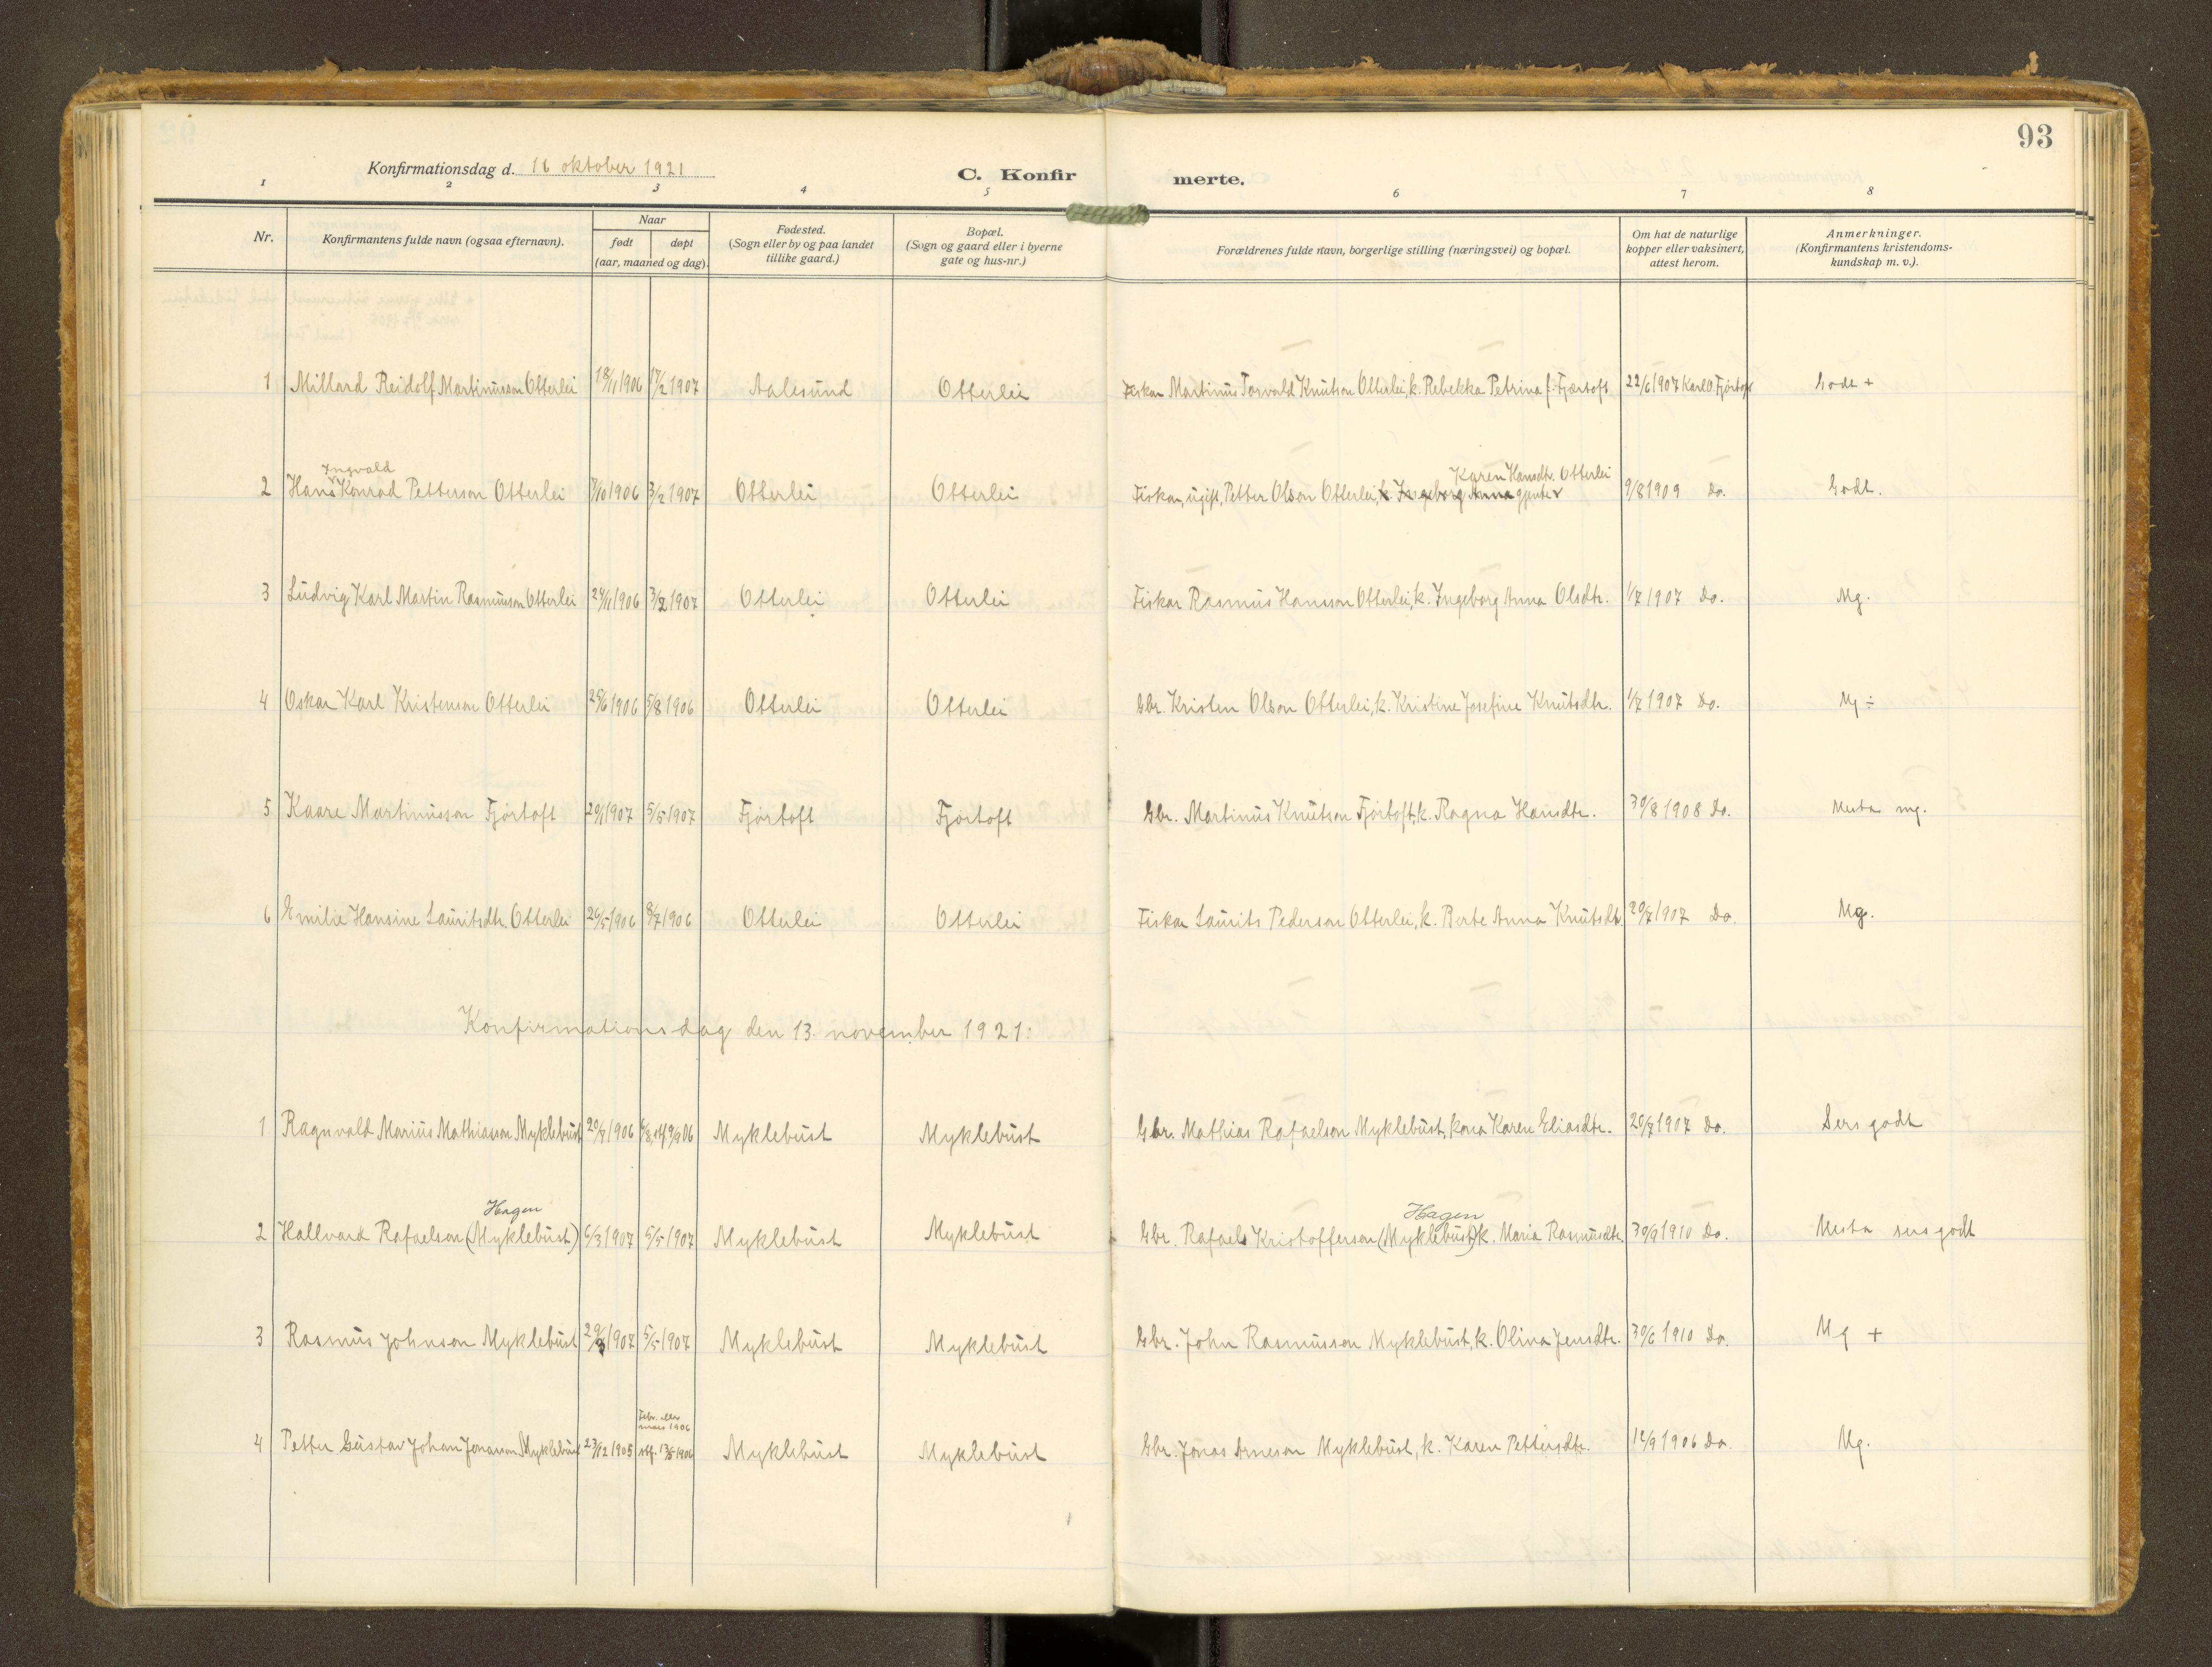 93
Konfirmationsdag d. 16 oktober 1921
C. Konfir merte.
1 2 3 4 5 6 7 8
Nr. Konfirmantens fulde navn (ogsaa efternavn). Naar født døpt (aar, maaned og dag). Fødested. (Sogn eller by og paa landet tillike gaard.) Bopæl. (Sogn og gaard eller i byerne gate og hus-nr.) Forældrenes fulde navn, borgerlige stilling (næringsvei) og bopæl. Om hat de naturlige kopper eller vaksinert, attest herom. Anmerkninger. (Konfirmantens kristendoms-kundskap m. v.).
1 Millard Reidolf Martinusson Otterlei 18/11 1906 17/2 1907 Aalesund Otterlei Fiskar Martinus Torvald Knutson Otterlei, k. Rebekka Petrina f. Fjørtoft 22/6 1907 Karl O. Fjørtoft Godt +
Ingvald Karen Hansdtr. Otterlei
2 Hans Konrad Petterson Otterlei 7/10 1906 3/2 1907 Otterlei Otterlei Fiskar, ugift, Petter Olson Otterlei, k Ingeborg Anna gjente 9/8 1909 Do. Godt.
3 Ludvig Karl Martin Rasmusson Otterlei 24/11 1906 3/2 1907 Otterlei Otterlei Fiskar Rasmus Hansson Otterlei, k. Ingeborg Anna Olsdtr. 1/7 1907 Do. Mg.
4 Oskar Karl Kristenson Otterlei 25/6 1906 5/8 1906 Otterlei Otterlei Gbr. Kristen Olson Otterlei, k. Kristine Josefine Knutsdtr. 1/7 1907 Do. Mg ÷
5 Kaare Martinusson Fjørtoft 29/1 1907 5/5 1907 Fjørtoft Fjørtoft Gbr. Martinus Knutson Fjørtoft, k. Ragna Hansdtr. 30/8 1908 Do. Mesta mg.
6 Emilie Hansine Lauritsdtr. Otterlei 26/5 1906 8/7 1906 Otterlei Otterlei Fiskar Laurits Pederson Otterlei, k. Berte Anna Knutsdtr. 20/7 1907 Do. Mg.
Konfirmationsdag den 13. november 1921:
1 Ragnvald Marius Mathiasson Myklebust 20/7 1906 Myklebust Myklebust Gbr. Mathias Rafaelson Myklebust, kona Karen Eliasdtr. 20/7 1907 Do. Sers godt
Hagen Hagen
2 Hallvard Rafaelson (Myklebust) 6/3 1907 5/5 1907 Myklebust Myklebust Gbr. Rafael Kristofferson (Myklebust) k. Maria Rasmusdtr. 30/9 1910 Do. Mesta sers godt
3 Rasmus Johnson Myklebust 29/3 1907 5/5 1907 Myklebust Myklebust Gbr. John Rasmusson Myklebust, k. Olina Jensdtr. 30/6 1910 Do. Mg +
Febr. eller mars 1906
4 Petter Gustav Johan Jonasson Myklebust 23/12 1905 stf. 13/5 1906 Myklebust Myklebust Gbr. Jonas Arneson Myklebust, k. Karen Pettersdtr. 12/9 1906 Do. Mg.